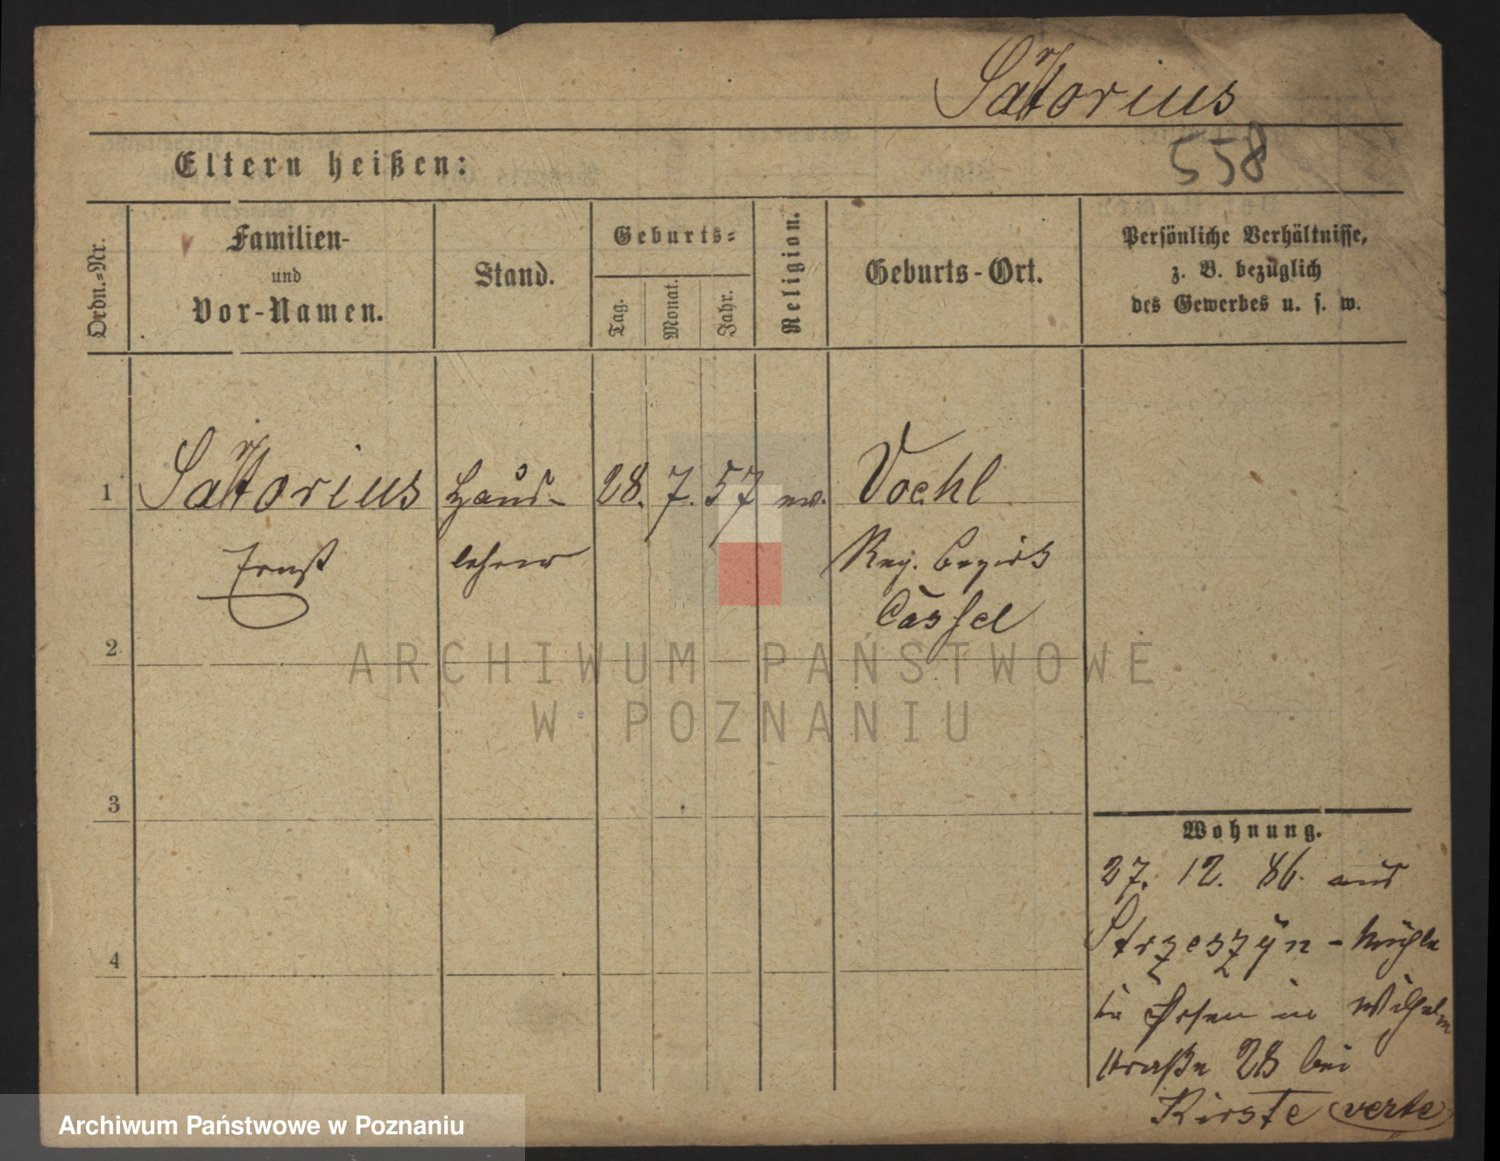 Sattorius
558
Eltern heißen:
Ordn.-Nr.
Familien-
und
Vor-Namen.
Stand.
Geburts-
Tag.
Monat.
Jahr.
Religion.
Geburts-Ort.
Persönliche Verhältnisse,
z. B. bezüglich
des Gewerbes u. s. w.
1 Sattorius Haus- 28. 7. 57 ev. Voehl
Ernst lehrer Reg. Bezirk
Cassel
2
3
4
Wohnung.
27. 12. 86. aus
Strzeszyn-Mühle
in Wilhelm
straße 28 bei
Kirste (verte)
ARCHIWUM PAŃSTWOWE
W POZNANIU
Archiwum Państwowe w Poznaniu